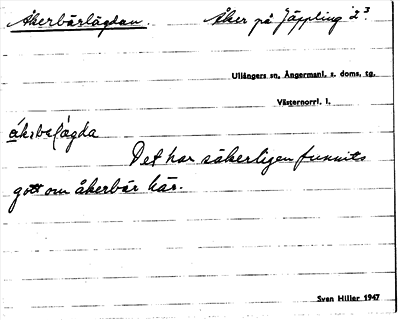 Åkerbärlägdan. Åker på Jäppling 2³.
Ullångers sn, Ångermanl. s. doms. tg.
Västernorrl. l.
Det har säkerligen funnits
gott om åkerbär här.
Sven Hiller 1947